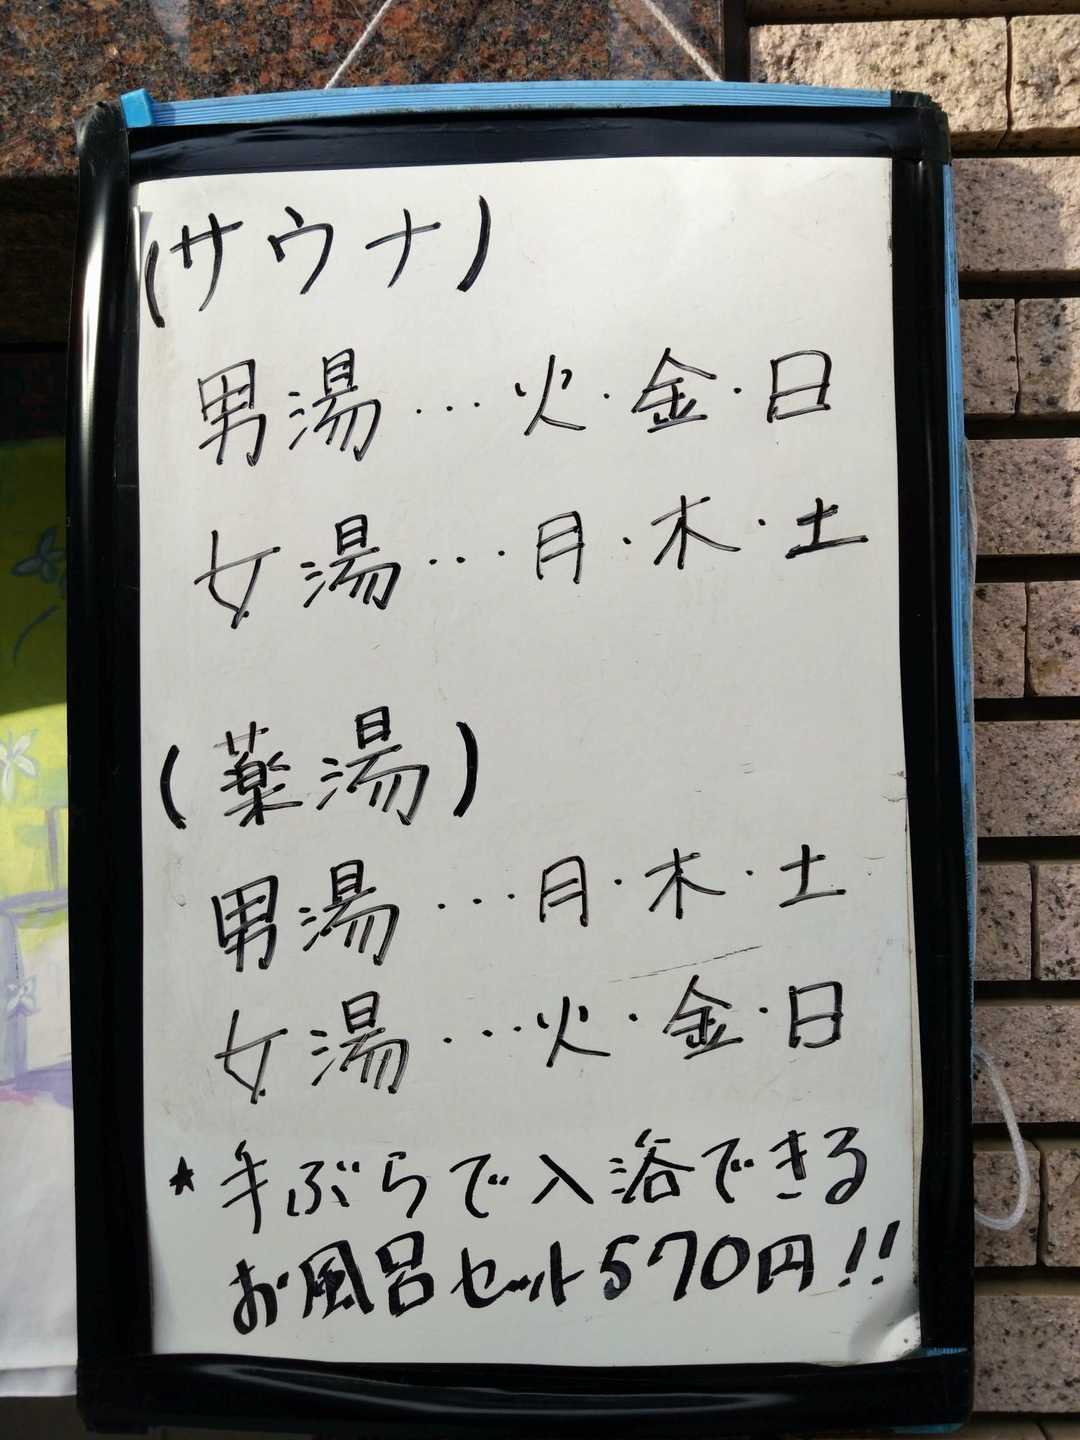 (サウナ)
男湯…火・金・日
女湯…月・木・土
(薬湯)
男湯…月・木・土
女湯…火・金・日
★手ぶらで入浴できる
お風呂セット570円!!